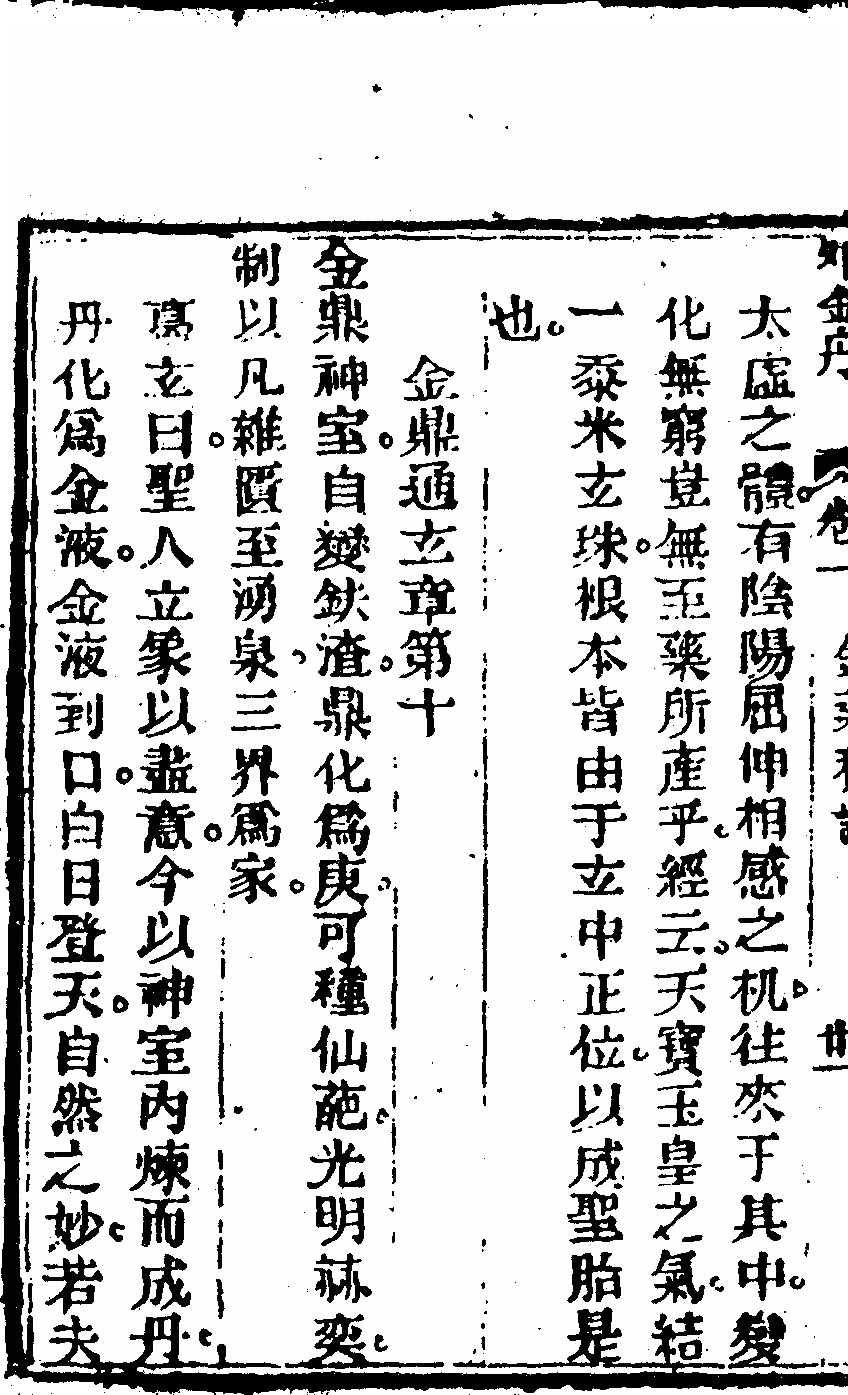 太虛之體。有陰陽屈伸相感之机。往來于其中。變
化無窮豈無至藥所產乎。經云。天寶玉皇之氣。結
一黍米玄珠。根本皆由于玄中正位。以成聖胎是
也。
金鼎通玄章第十
金鼎神室。自變鈇渣。鼎化爲庚。可種仙葩。光明赫奕。
制以凡雜匱至湧泉。三界爲家。
葛玄曰。聖人立象以盡意。今以神室內煉而成丹。
丹化爲金液。金液到口。白日登天。自然之妙。若夫